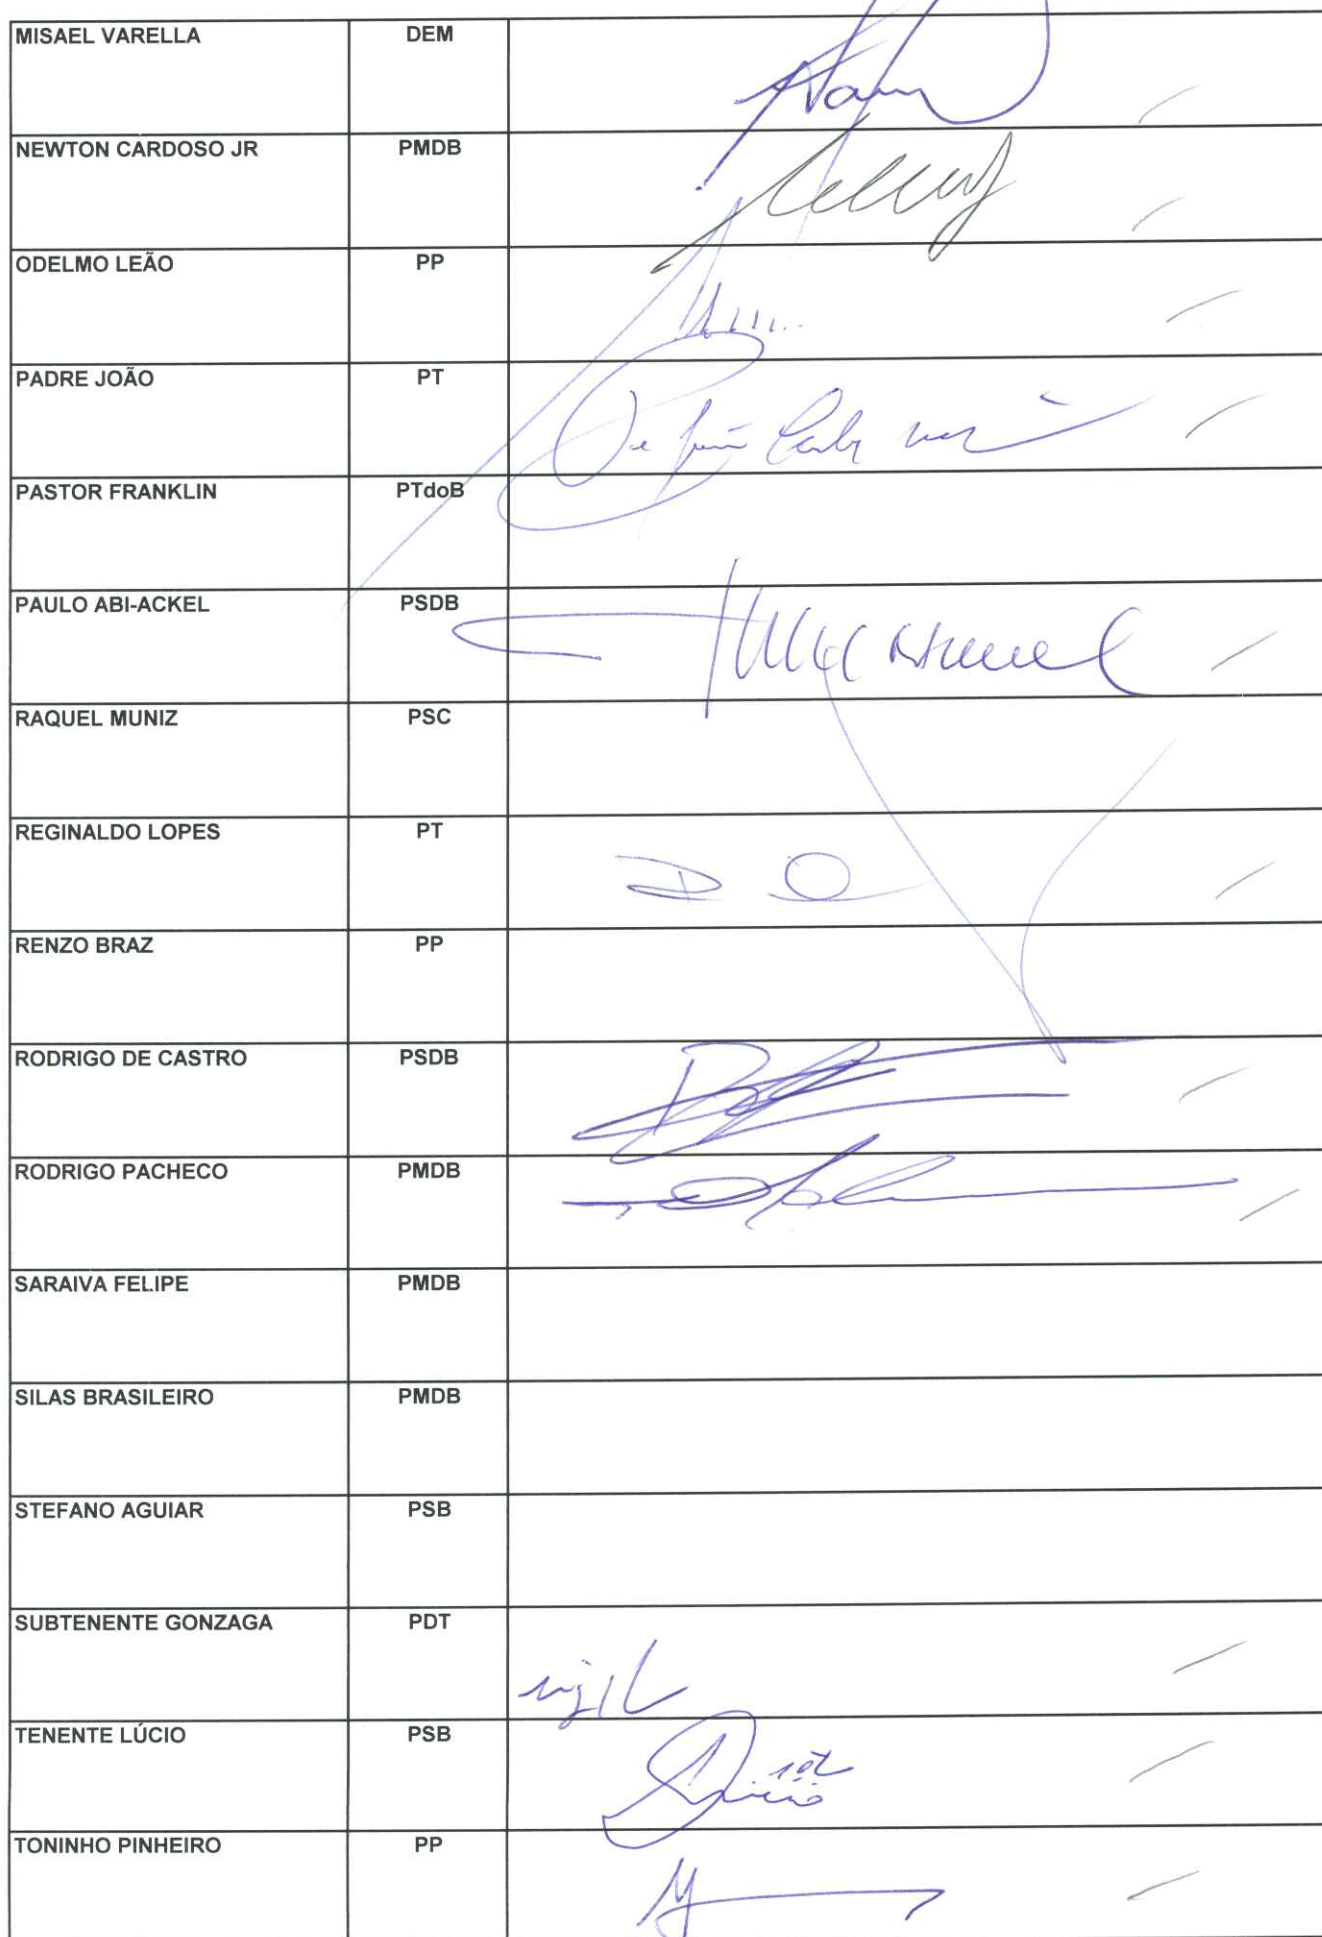 MISAEL VARELLA DEM
NEWTON CARDOSO JR PMDB
ODELMO LEÃO PP
PADRE JOÃO PT
PASTOR FRANKLIN PTdoB
PAULO ABI-ACKEL PSDB
RAQUEL MUNIZ PSC
REGINALDO LOPES PT
RENZO BRAZ PP
RODRIGO DE CASTRO PSDB
RODRIGO PACHECO PMDB
SARAIVA FELIPE PMDB
SILAS BRASILEIRO PMDB
STEFANO AGUIAR PSB
SUBTENENTE GONZAGA PDT
TENENTE LÚCIO PSB
TONINHO PINHEIRO PP